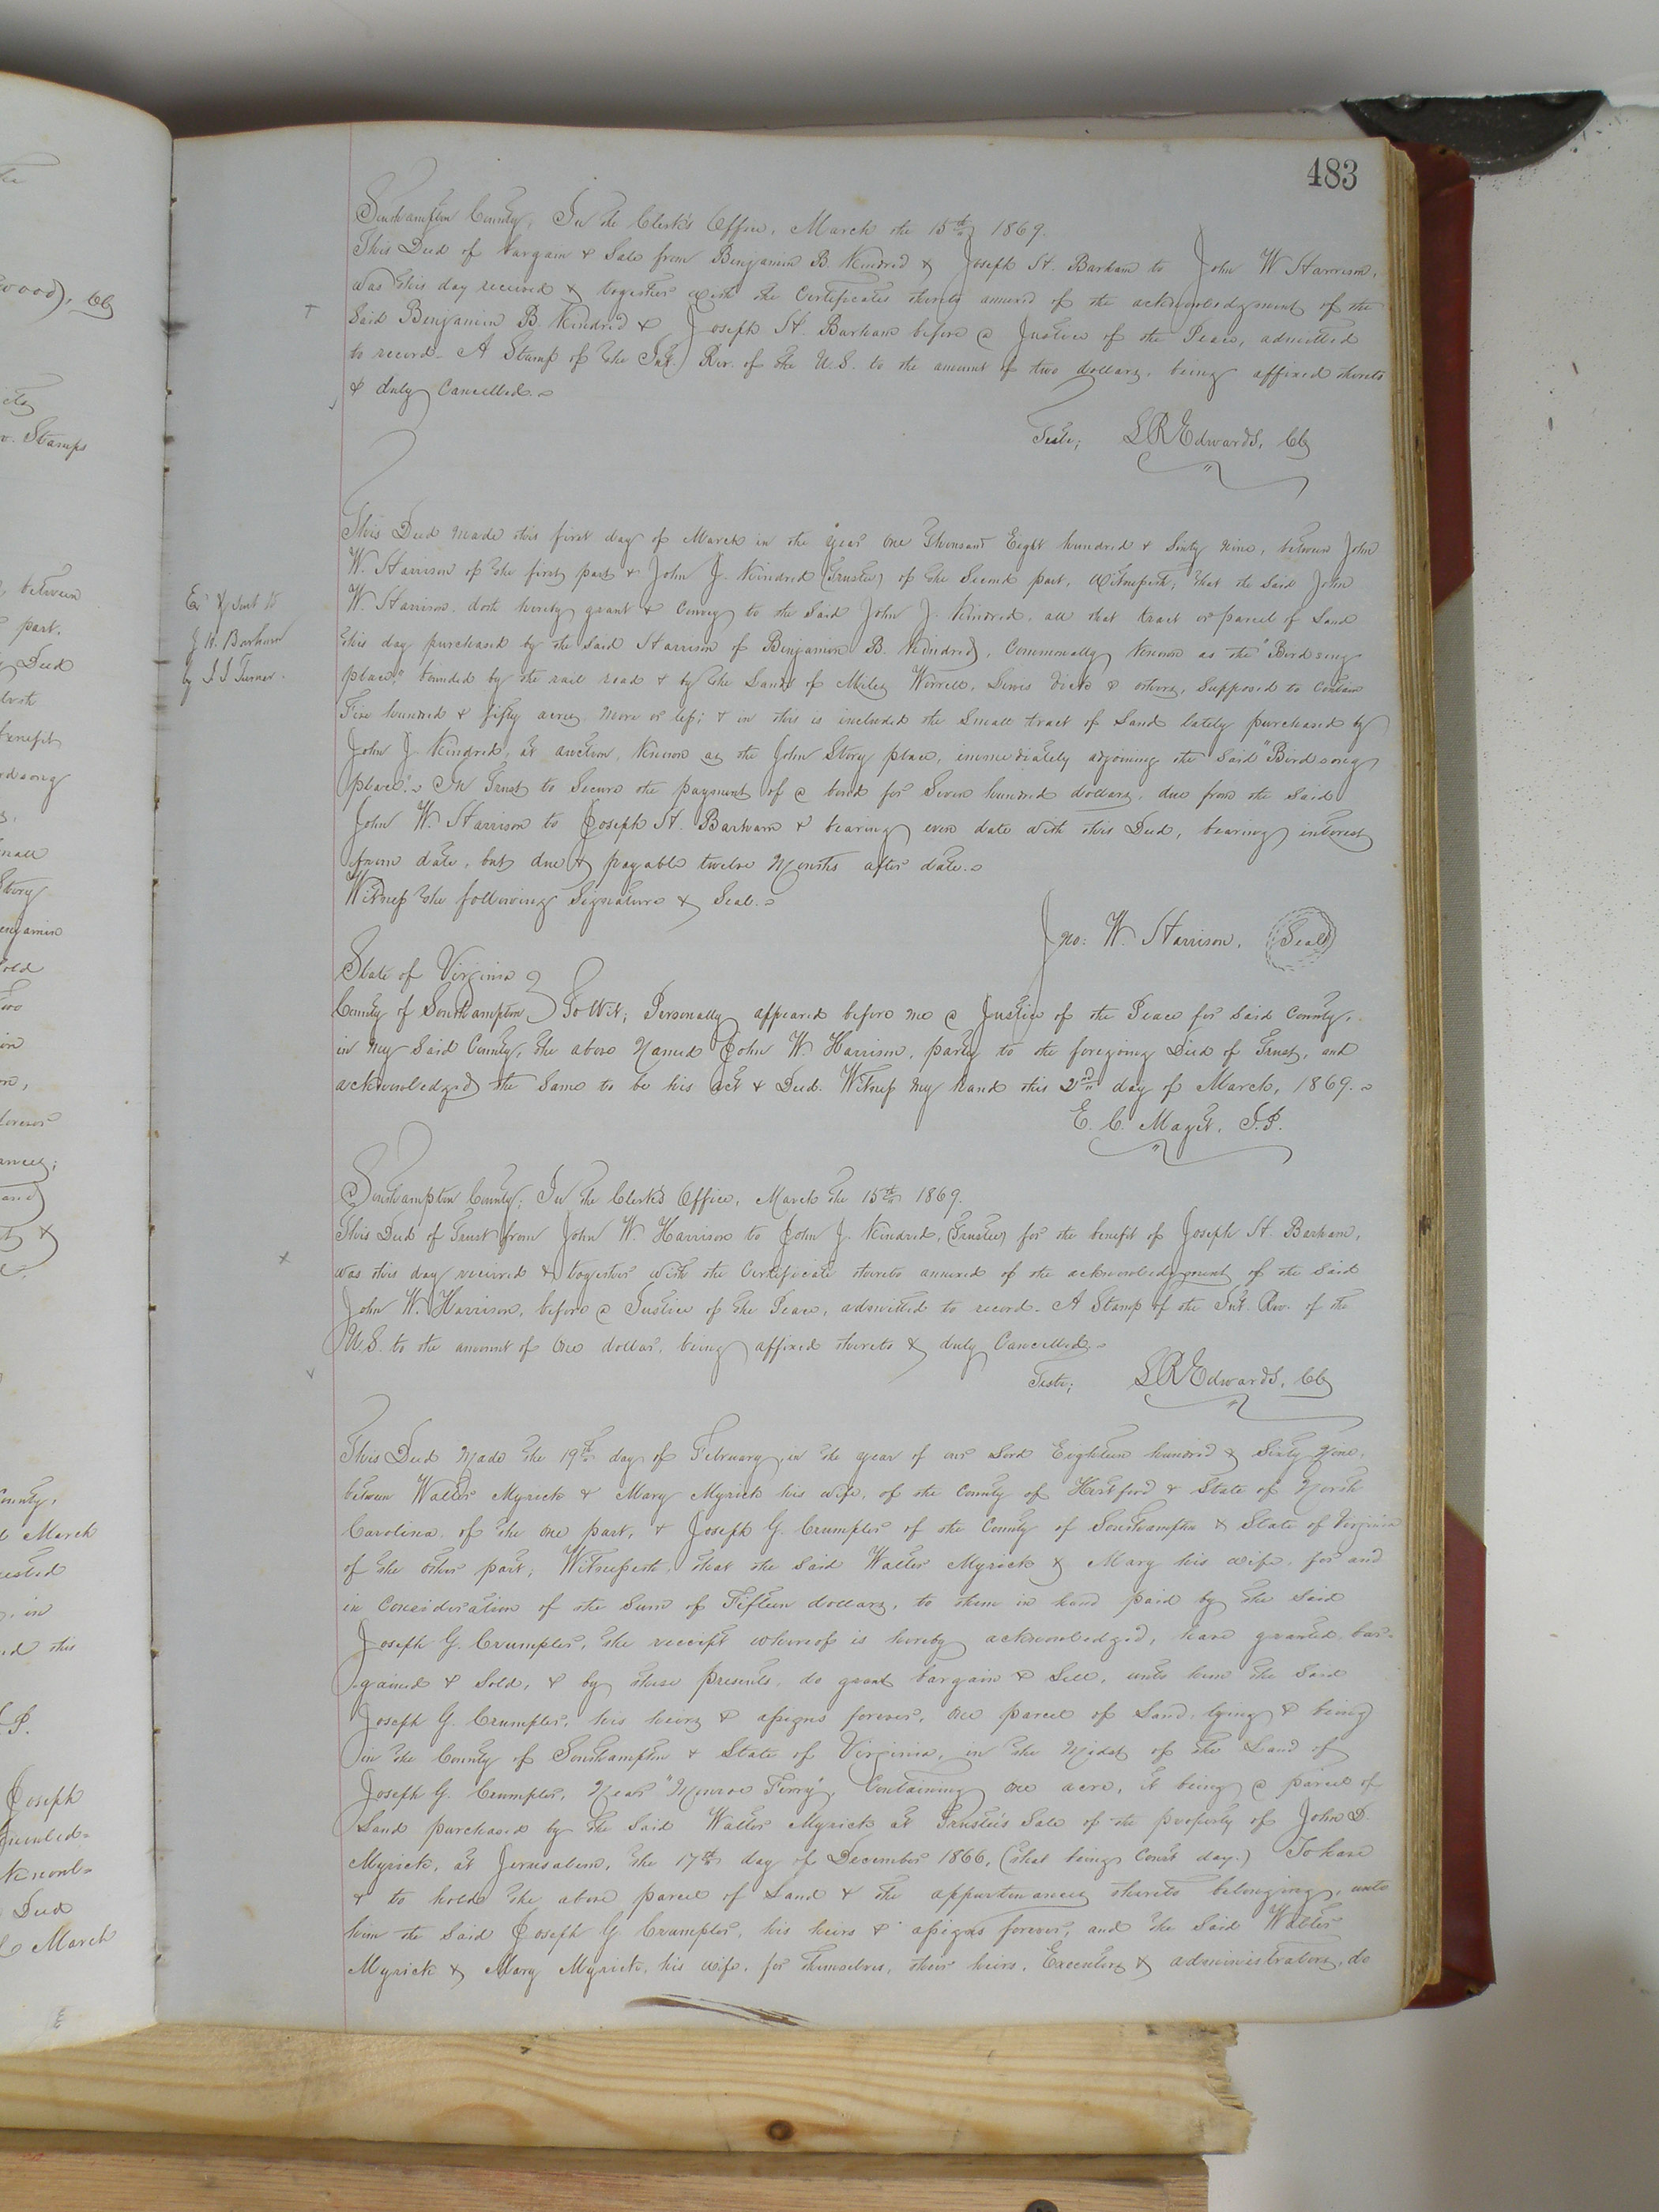 483
Southampton County, In the Clerk's Office, March the 15th 1869.
This Deed of bargain & Sale from Benjamin B. Kindred & Joseph H. Barham to John W Harrison,
was this day received & together with the Certificates thereto annexed of the acknowledgment of the
Said Benjamin B. Kindred & Joseph H. Barham before a Justice of the Peace, admitted
to record. A Stamp of the Int. Rev. of the U.S. to the amount of two dollars, being affixed thereto
& duly Cancelled.
Teste; L R Edwards, Clk
This Deed made this first day of March in the year One Thousand Eight hundred & Sixty Nine, between John
W. Harrison of the first part & John J. Kindred (Trustee) of the Second part, Witnesseth, that the said John
W. Harrison, doth hereby grant & Convey to the Said John J. Kindred, all that tract or parcel of Land
this day purchased by the said Harrison of Benjamin B. Kindred, Commonally Known as the "Birdsong
place," bounded by the rail road & by the Lands of Miles Worrell, Lewis Dick & others, Supposed to Contain
Five hundred & fifty acres, more or less; & in this is included the Small tract of Land lately purchased by
John J. Kindred, at auction, Known as the John Story place, immediately adjoining the Said "Birdsong
place". In Trust to Secure the payment of a bond for Seven hundred dollars, due from the Said
John W. Harrison to Joseph H. Barham & bearing even date with this Deed, bearing interest
from date, but due & payable twelve Months after date.
Witness the following Signature & Seal.
Jno: W. Harrison, (Seal)
State of Virginia
County of Southampton To Wit; Personally appeared before me a Justice of the Peace for Said County,
in my Said County, the above Named John W. Harrison, party to the foregoing Deed of Trust, and
acknowledged the Same to be his act & Deed. Witness my hand this 2nd day of March, 1869.
E. C. Maget, J.P.
Southampton County; In the Clerk's Office, March the 15th 1869.
This Deed of Trust from John W. Harrison to John J. Kindred, (Trustee) for the benefit of Joseph H. Barham,
was this day received & together with the Certificate thereto annexed of the acknowledgment of the Said
John W. Harrison, before a Justice of the Peace, admitted to record. A Stamp of the Int. Rev. of the
U.S. to the amount of One dollar, being affixed thereto & duly Cancelled.
Teste; L R Edwards, Clk
This Deed Made the 19th day of February, in the year of our Lord Eighteen hundred & Sixty Nine,
between Walter Myrick & Mary Myrick his wife, of the County of Hertford & State of North
Carolina, of the one part, & Joseph G. Crumpler of the County of Southampton & State of Virginia
of the other part, Witnesseth, that the Said Walter Myrick & Mary his wife, for and
in Consideration of the Sum of Fifteen dollars, to them in hand paid by the Said
Joseph G. Crumpler, the receipt whereof is hereby acknowledged, have granted, bar-
gained & Sold, & by these presents, do grant bargain & Sell, unto him the Said
Joseph G. Crumpler, his heirs & assigns forever, One parcel of Land, lying & being
in the County of Southampton & State of Virginia, in the Midst of the Land of
Joseph G. Crumpler, Near "Monroe Ferry", Containing one acre, it being a parcel of
Land purchased by the Said Walter Myrick at Trustee's Sale of the property of John D.
Myrick, at Jerusalem, the 17th day of December 1866, (that being Court day.) To have
& to hold the above parcel of Land & the appurtenances thereto belonging, unto
him the Said Joseph G Crumpler, his heirs & assigns forever, and the Said Walter
Myrick & Mary Myrick, his wife, for themselves, their heirs, Executors & administrators, do
J. H. Barham
by J J Turner.
wood), Clk
Stamps
between
part,
Deed
benefit
Joseph
Deed
March